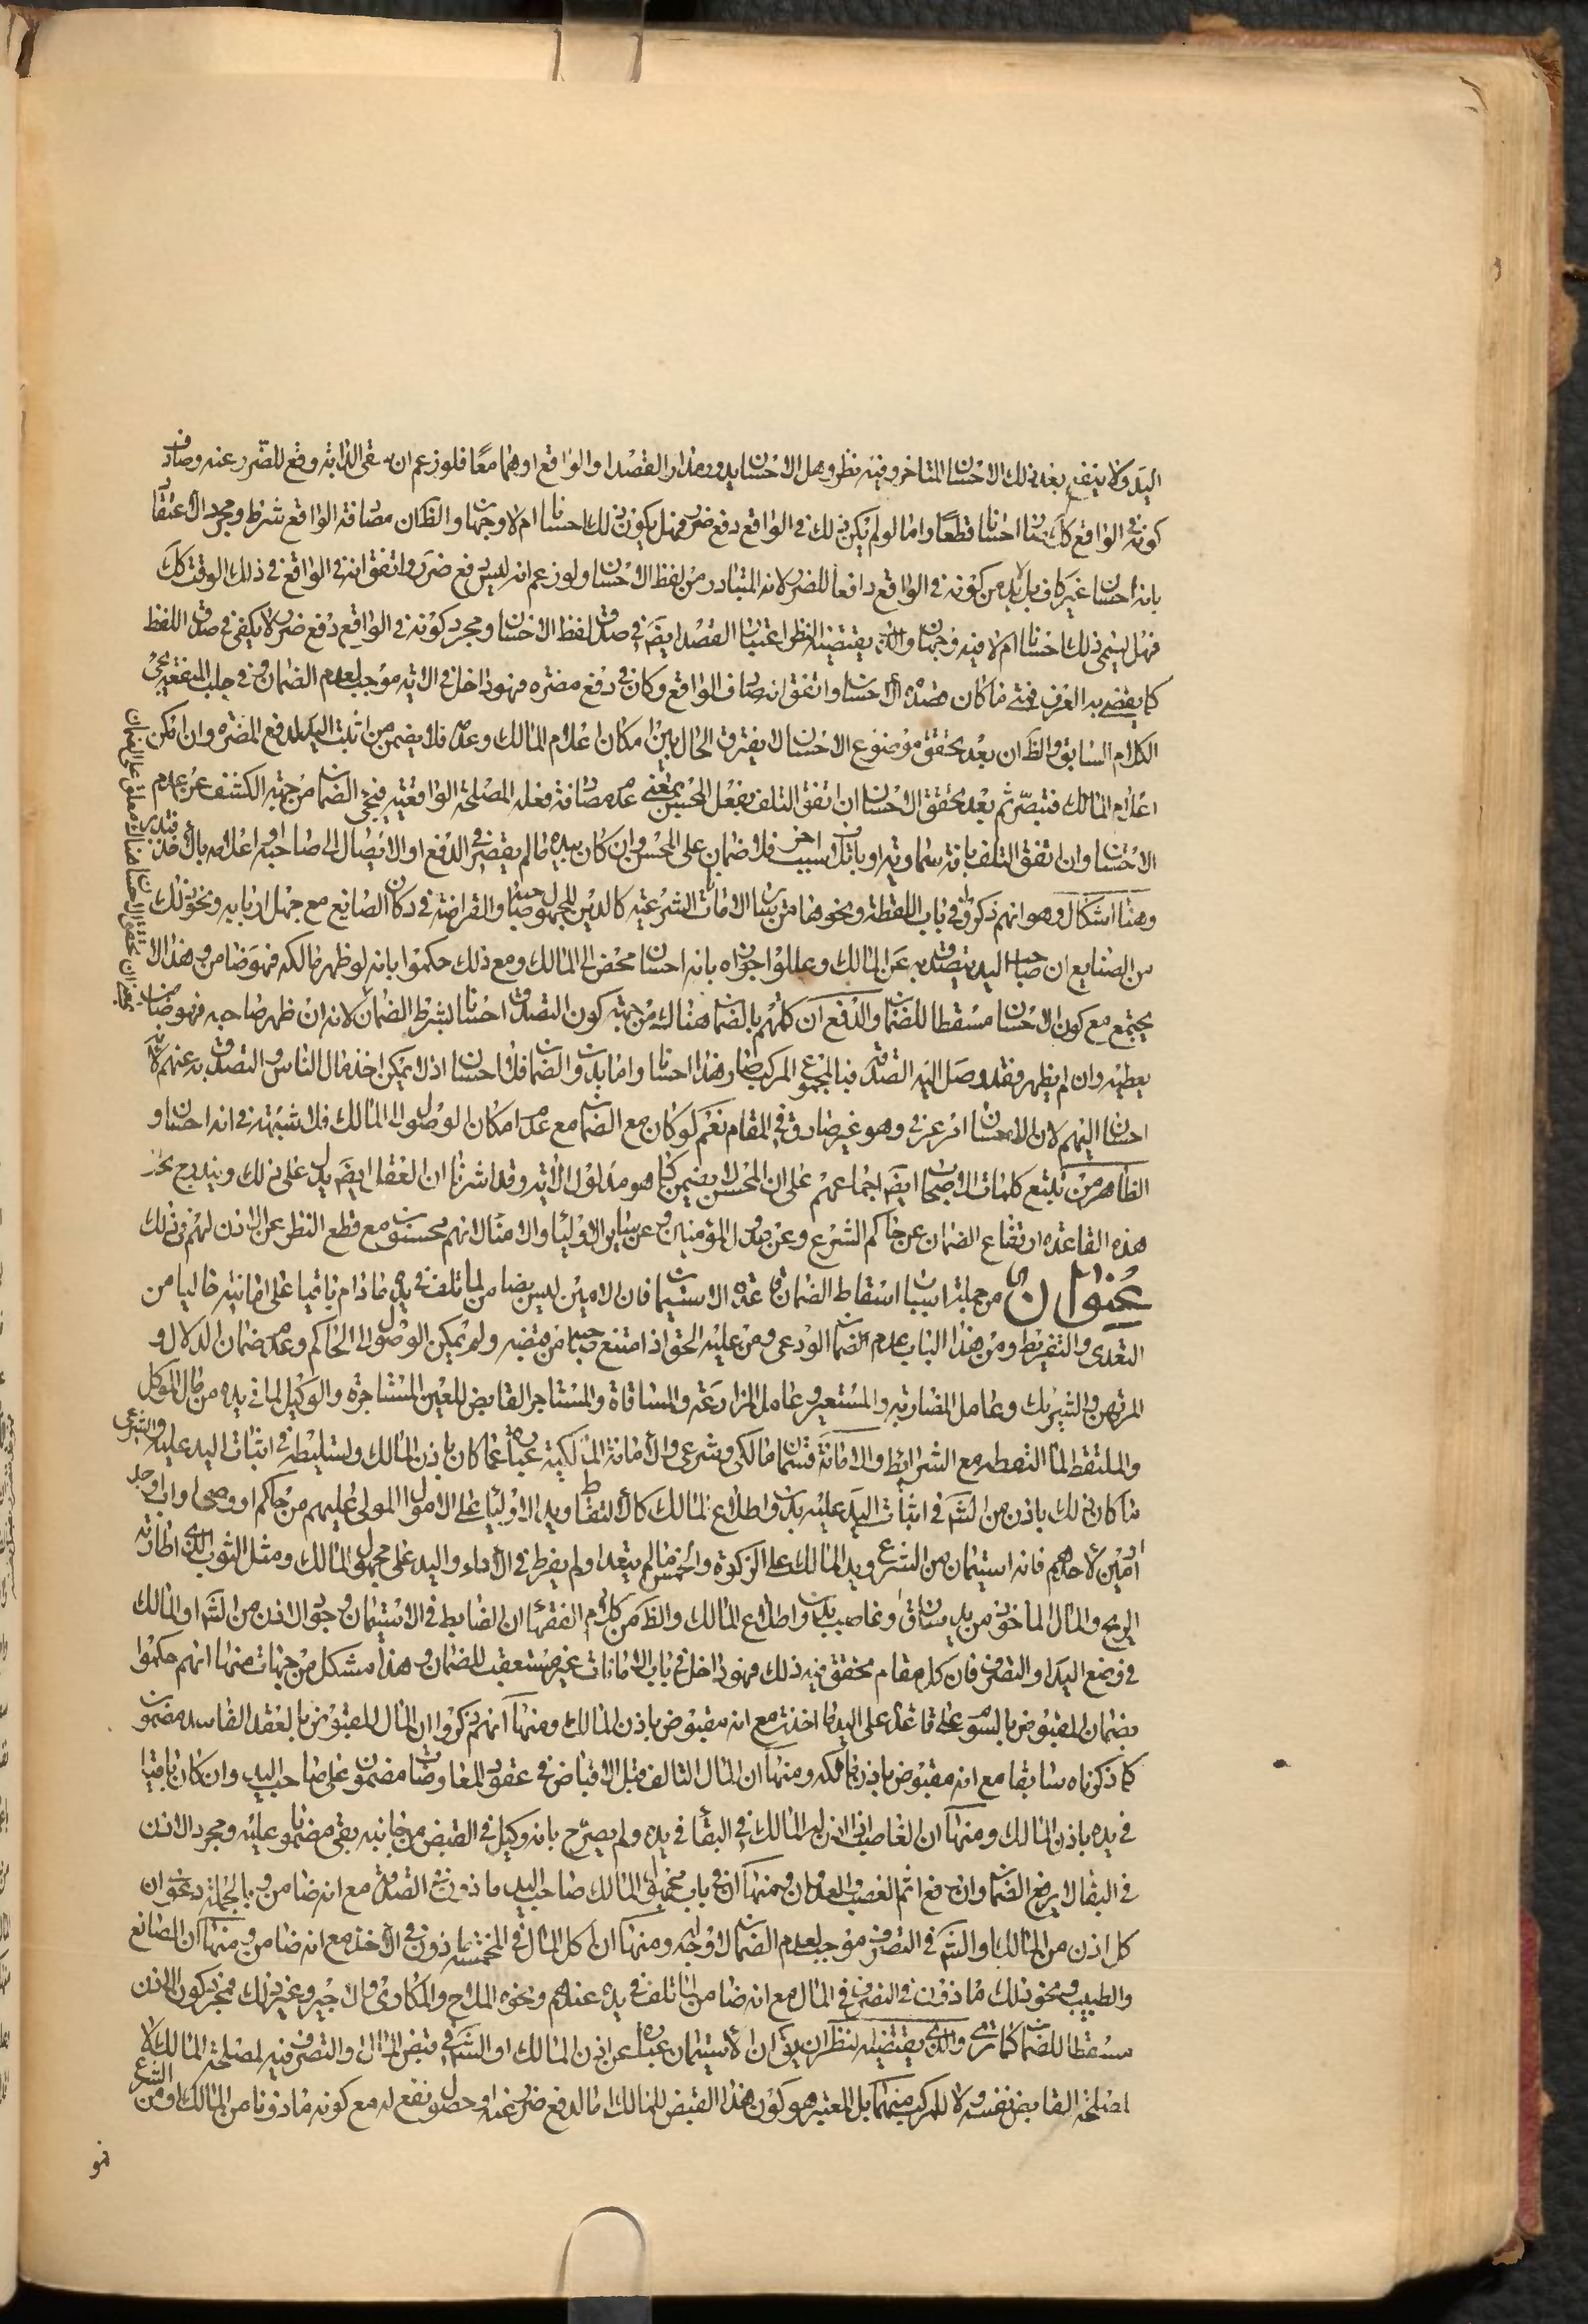 اليد ولا ينفع بعد ذلك الاحسان المتاخر وفيه نظر وهل الاحسان يدور مدار القصد او الواقع او هما معا فلو زعم ان سقى الدابة دفع للضرر عنه وصادف
كونه فى الواقع كك كان احسانا قطعا واما لو لم يكن ذلك فى الواقع دفع ضرر فهل يكون ذلك احسانا ام لا وجهان والظ ان مصادفة الواقع شرط ومجرد الاعتقاد
بانه احسان غير كاف بل لابد من كونه فى الواقع دافعا للضرر لانه المتبادر من لفظ الاحسان ولو زعم انه ليس دفع ضرر واتفق انه فى الواقع فى ذلك الوقت كك
فهل يسمى ذلك احسانا ام لا فيه وجهان والذى يقتضيه النظر اعتبار القصد ايضا فى صدق لفظ الاحسان ومجرد كونه فى الواقع دفع ضرر لا يكفى فى صدق اللفظ
كما يقضى به العرف فمتى ما كان قصده الاحسان واتفق انه صادف الواقع وكان فى دفع مضرة فهو داخل فى الاية موجب لعدم الضمان وفى جلب المنفعة يجئ
الكلام السابق والظ ان بعد تحقق موضوع الاحسان لا يفترق الحال بين امكان اعلام المالك وعدمه فلا يضمن من اثبت اليد لدفع المضرة وان امكن
اعلام المالك فتبصر ثم بعد تحقق الاحسان ان اتفق التلف بفعل المحسن بمعنى عدم مصادفة فعله المصلحة الواقعية فيجئ الضمان من جهة الكشف عن عدم
الاحسان وان اتفق التلف بافة سماوية او باتلاف سبب اخر فلا ضمان على المحسن وان كان بيده ما لم يقصر فى الدفع او الايصال الى صاحبه او اعلامه بالاخذ فتدبر
وهنا اشكال وهو انهم ذكروا فى باب اللقطة ونحوها من سائر الامانات الشرعية كالدين المجهول صاحبه والقراضة فى دكان الصائع مع جهل اربابه ونحو ذلك
من الصنايع ان صاحب اليد يتصدق به عن المالك وعللوا جوازه بانه احسان محض الى المالك ومع ذلك حكموا بانه لو ظهر مالكه فهو ضامن وهذا لا
يجتمع مع كون الاحسان مسقطا للضمان والدفع ان كلمتهم بالضمان هنالك من جهة كون التصدق احسانا بشرط الضمان لانه ان ظهر صاحبه فهو ضامن
يعطيه وان لم يظهر فقد وصل اليه الصدقة فبالمجموع المركب صار هذا احسانا واما بدون الضمان فلا احسان اذ لا يمكن اخذ مال الناس والتصدق به عنهم لانه
احسان اليهم لان الاحسان امر عرفى وهو غير صادق فى المقام نعم لو كان مع الضمان مع عدم امكان الوصول الى المالك فلا شبهة فى انه احسان و
الظاهر من تتبع كلمات الاصحاب ايضا اجماعهم على ان المحسن لا يضمن كما هو مدلول الاية وقد اشرنا ان العقل ايضا يدل على ذلك ويندرج تحت
هذه القاعدة ارتفاع الضمان عن حاكم الشرع وعن عدول المؤمنين وعن سائر الاولياء والامناء لانهم محسنون مع قطع النظر عن الاذن لهم فى ذلك
عنوان من جملة اسباب اسقاط الضمان قاعدة الاستيمان فان الامين ليس بضامن لما تلف فى يده ما دام باقيا على امانيته خاليا من
التعدى والتفريط ومن هذا الباب عدم الضمان الودعى ومن عليه الحق اذا امتنع صاحبه من قبضه ولم يمكن الوصول الى الحاكم وعدم ضمان الدلال و
المرتهن والشريك وعامل المضاربة والمستعير وعامل المزارعة والمساقاة والمستاجر القابض للعين المستاجرة والوكيل لما فى يده من مال الموكل
والملتقط لما التقطه مع الشرائط والامانة قسمان مالكى وشرعى والامانة المالكية عبارة عما كان باذن المالك وتسليطه فى اثبات اليد عليه والشرعى
ما كان ذلك باذن من الشرع فى اثبات اليد عليه بدون اطلاع المالك كالالتقاط ويد الاولياء على الاموال المولى عليهم من حاكم او وصى او اب او جد
او امين لاحدهم فانه استيمان من الشرع ويد المالك على الزكوة والخمس ما لم يتعد او لم يفرط فى الاداء واليد على مجهول المالك ومثل الثوب الذى اطارته
الريح والمال الماخوذ من يد سارق او غاصب بدون اطلاع المالك والظ من كلام الفقهاء ان الضابط فى الاستيمان وجود الاذن من الشرع او المالك
فى وضع اليد او التصرف فان كل مقام تحقق فيه ذلك فهو داخل فى باب الامانات غير مستعقب للضمان وهذا مشكل من جهات منها انهم حكموا
بضمان المقبوض بالسوم على قاعدة على اليد ما اخذت مع انه مقبوض باذن المالك ومنها انهم ذكروا ان المال المقبوض بالعقد الفاسد مضمون
كما ذكرناه سابقا مع انه مقبوض باذن مالكه ومنها ان المال التالف قبل الاقباض فى عقود المعاوضات مضمون على صاحب اليد وان كان باقيا
فى يده باذن المالك ومنها ان الغاصب اذا اذن له المالك فى البقاء فى يده ولم يصرح بانه وكيل فى القبض من جانبه بقى مضمونا عليه ومجرد الاذن
فى البقاء لا يرفع الضمان وان رفع اثم الغصب والعدوان ومنها ان فى باب مجهول المالك صاحب اليد ماذون فى التصدق مع انه ضامن وبالجملة دعوى ان
كل اذن من المالك او الشرع فى التصرف موجب لعدم الضمان لا وجه له ومنها ان اكل المال فى المخمصة ماذون فى الاخذ مع انه ضامن ومنها ان الصانع
والطبيب ونحو ذلك ماذون فى التصرف فى المال مع انه ضامن لما تلف فى يده عندهم ونحوه الملاح والمكارى والاجير وغير ذلك فمجرد كون الاذن
مسقطا للضمان كما ترى والذى يقتضيه النظر ان يق ان الاستيمان عبارة عن اذن المالك او الشرع فى قبض المال والتصرف فيه لمصلحة المالك لا
لمصلحة القابض نفسه ولا للمركب منهما بل المعتبر هو كون هذا القبض للمالك اما لدفع ضرر عنه او حصول نفع له مع كونه ماذونا من المالك او من الشرع